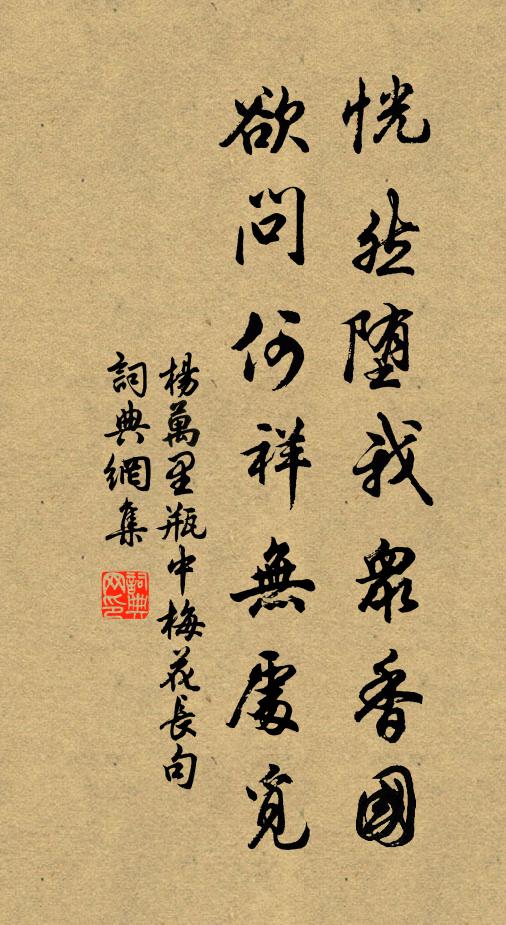 恍然墮我眾香國
欲問何祥無處覓
楊萬里瓶中梅花長句
詞典網集
詞典
网印